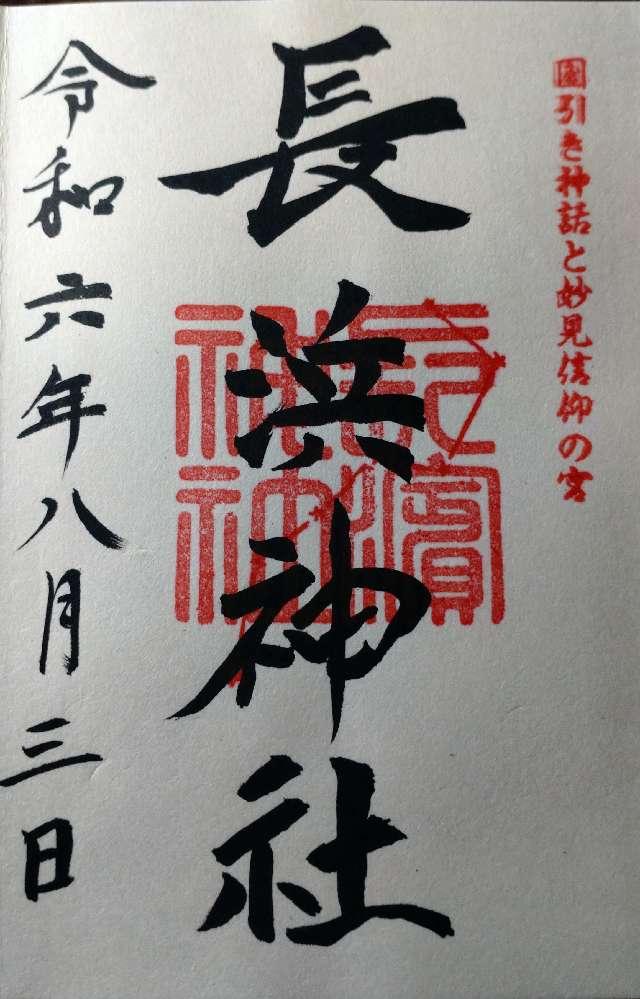 圀引き神話と妙見信仰の宮
長浜神社
令和六年八月三日